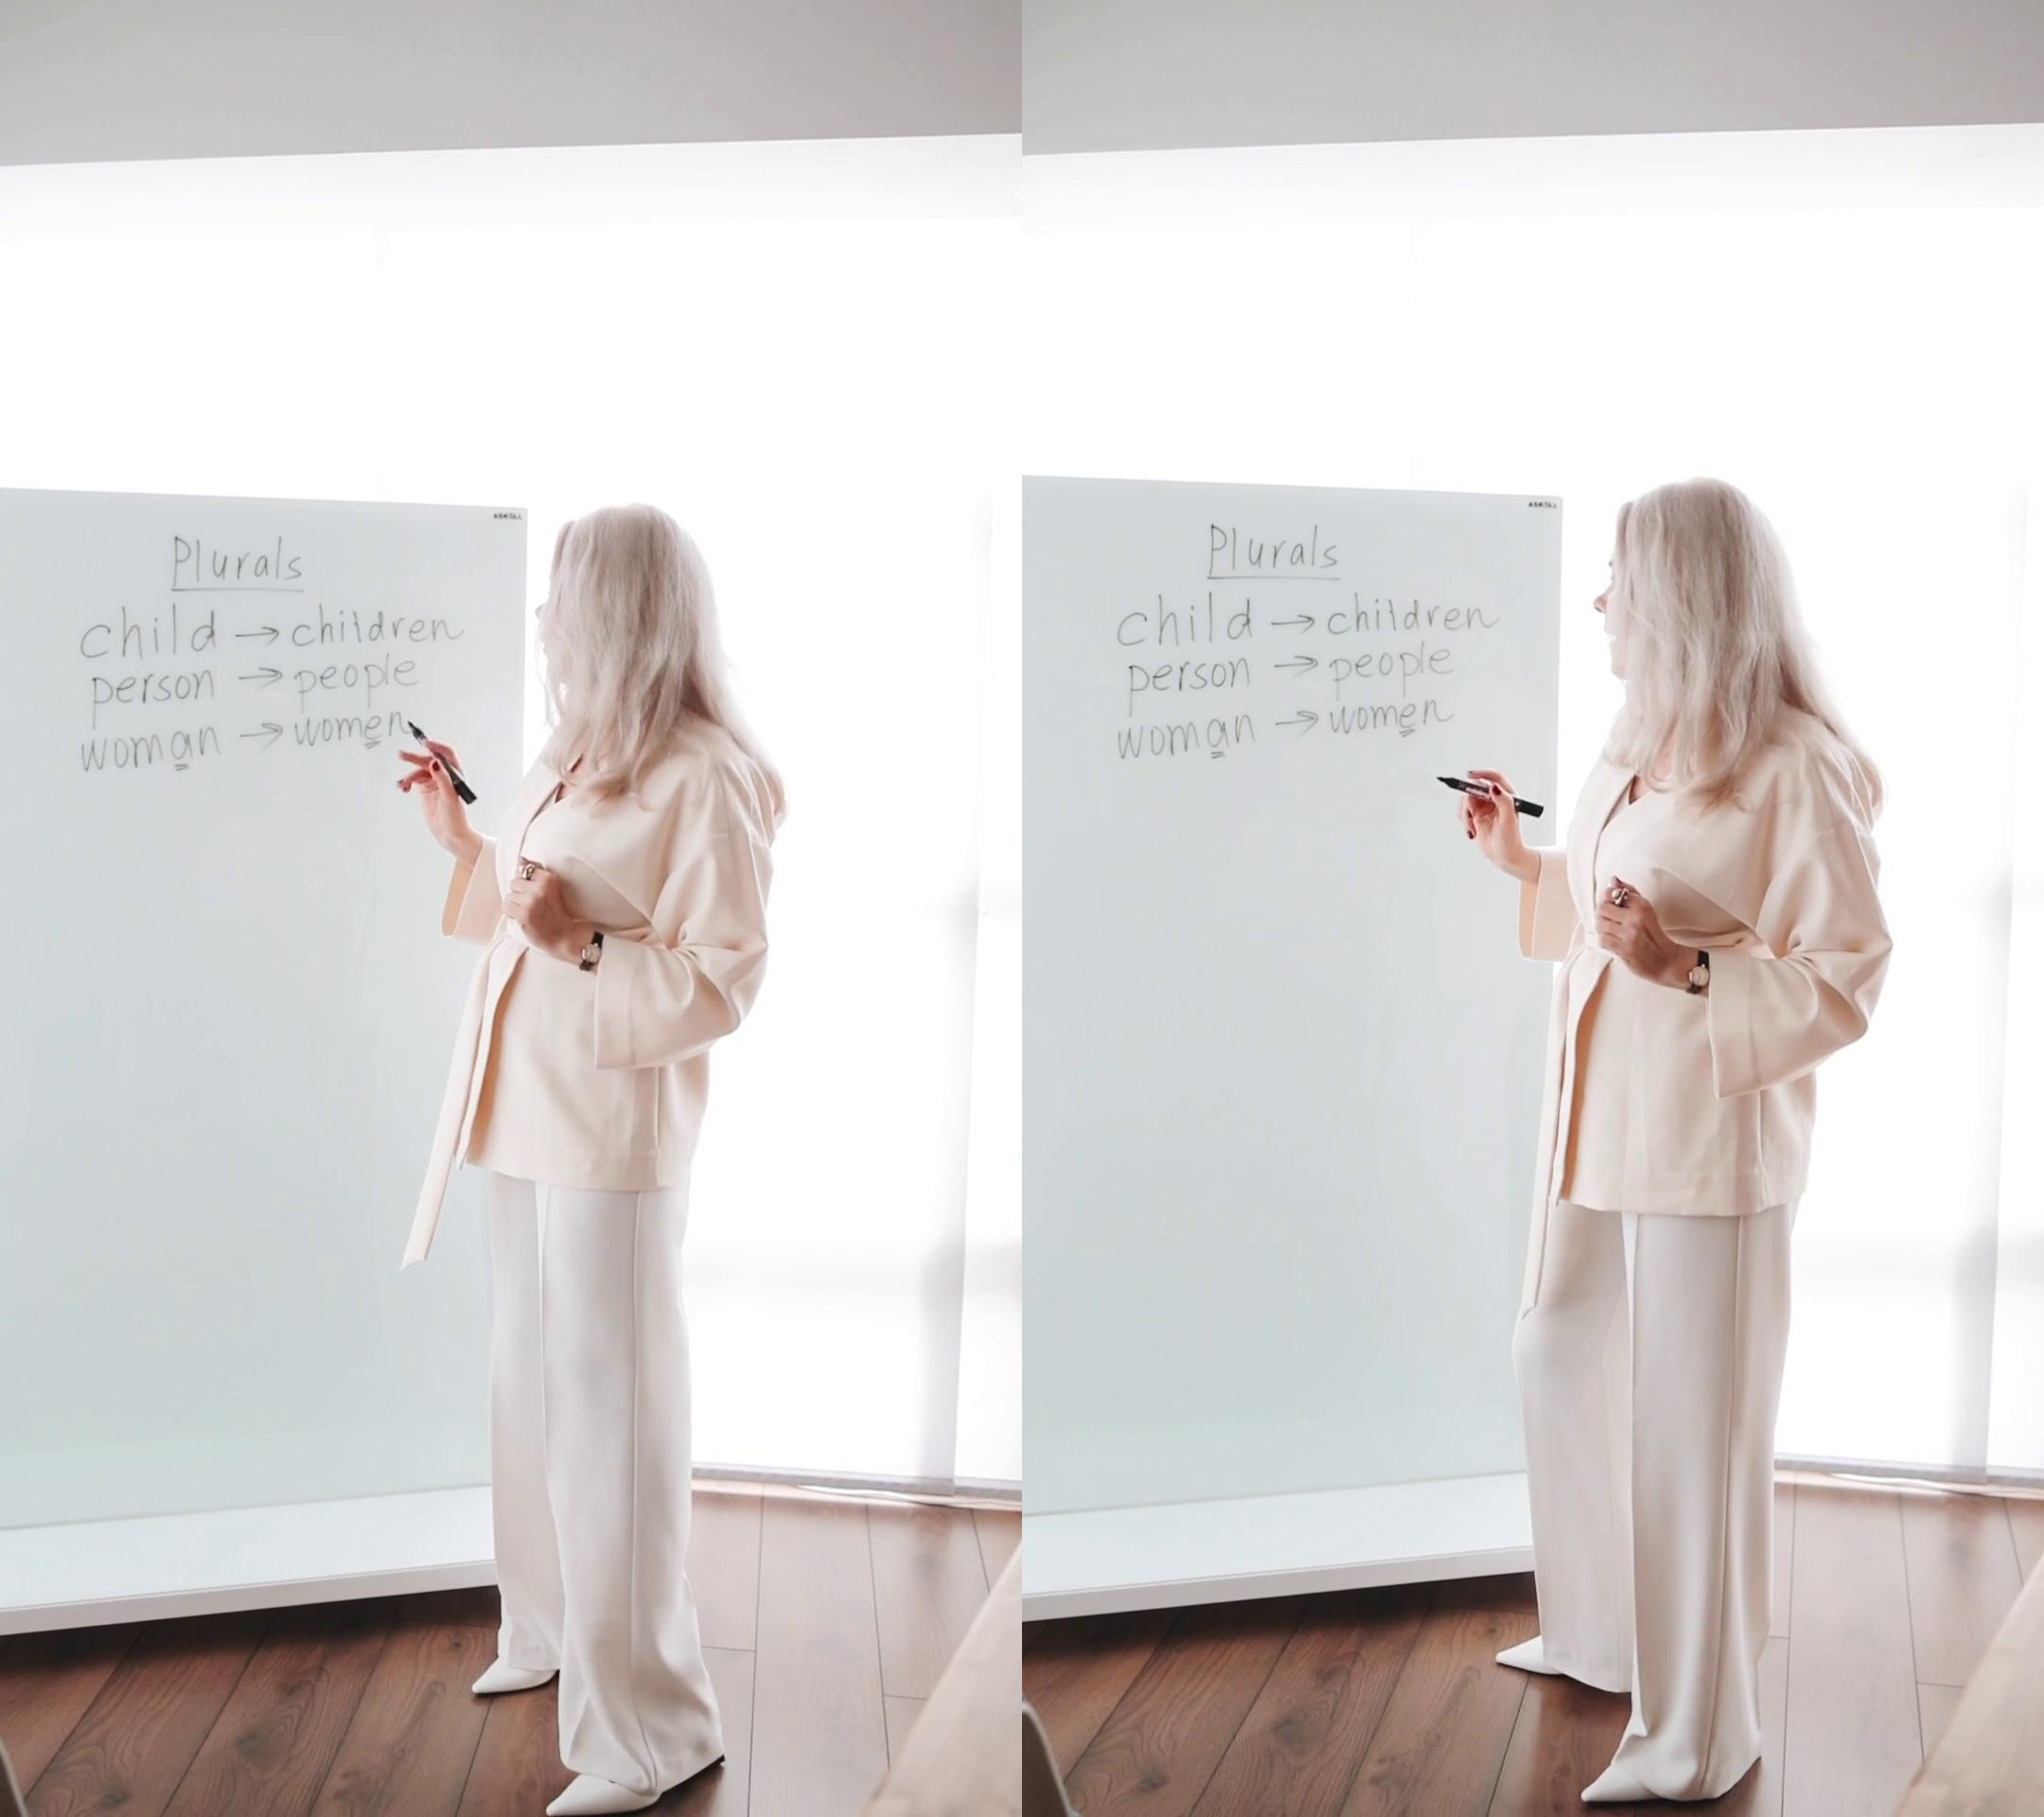 ASKELL
Plurals
child → children
person → people
woman → women
ASKELL
Plurals
child → children
person → people
woman → women